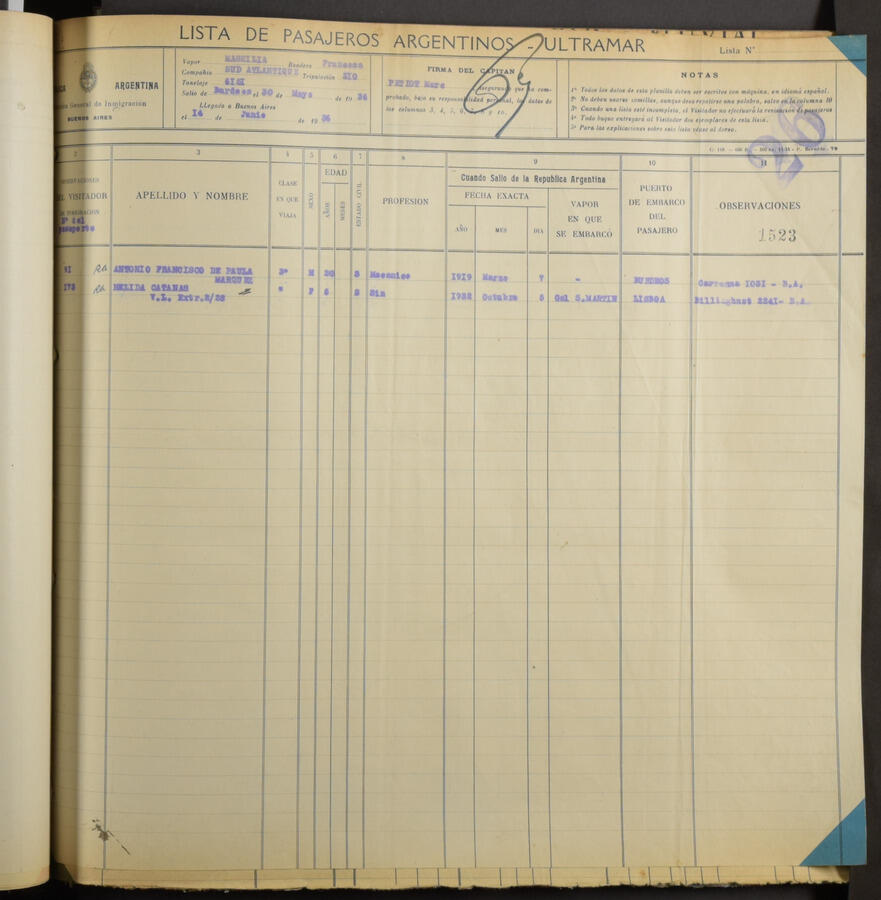 LISTA DE PASAJEROS ARGENTINOS - ULTRAMAR
Lista Nº
ARGENTINA
General de Inmigración
BUENOS AIRES
Vapor MASSILIA Bandera Francesa
Compañía SUD ATLANTIQUE Tripulación 310
Tonelaje
Salió de Burdeos el 30 de Mayo de 1936
Llegada a Buenos Aires
el 14 de Junio de 1936
FIRMA DEL CAPITAN
asegurando que he com-
probado, bajo mi responsabilidad personal, los datos de
las columnas 3, 4, 5, 6, y 10.
NOTAS
1º Todos los datos de esta planilla deben ser escritos con máquina, en idioma español.
2º No deben usarse comillas, aunque deba repetirse una palabra, salvo en la columna 10
3º Cuando una lista esté incompleta, el Visitador no efectuará la revisación de pasajeros
4º Todo buque entregará al Visitador dos ejemplares de esta lista.
5º Para las explicaciones sobre esta lista véase al dorso.
26
2 3 4 5 6 7 8 9 10 11
VISITADOR
Nº del
pasaporte
APELLIDO Y NOMBRE
CLASE
EN QUE
VIAJA
SEXO
EDAD
AÑOS
MESES
ESTADO CIVIL
PROFESION
Cuando Salió de la Republica Argentina
FECHA EXACTA
AÑO MES DIA
VAPOR
EN QUE
SE EMBARCÓ
PUERTO
DE EMBARCO
DEL
PASAJERO
OBSERVACIONES
1523
RA ANTONIO FRANCISCO DE PAULA MARQUEZ 3ª M S 1919 Marzo 7 - BURDEOS 1031 - B.A.
173 RA CATANAS " F S Sin 1932 Octubre Gal S.MARTIN LISBOA Billinghust 2241- B.A.
V.L. Extr.2/38